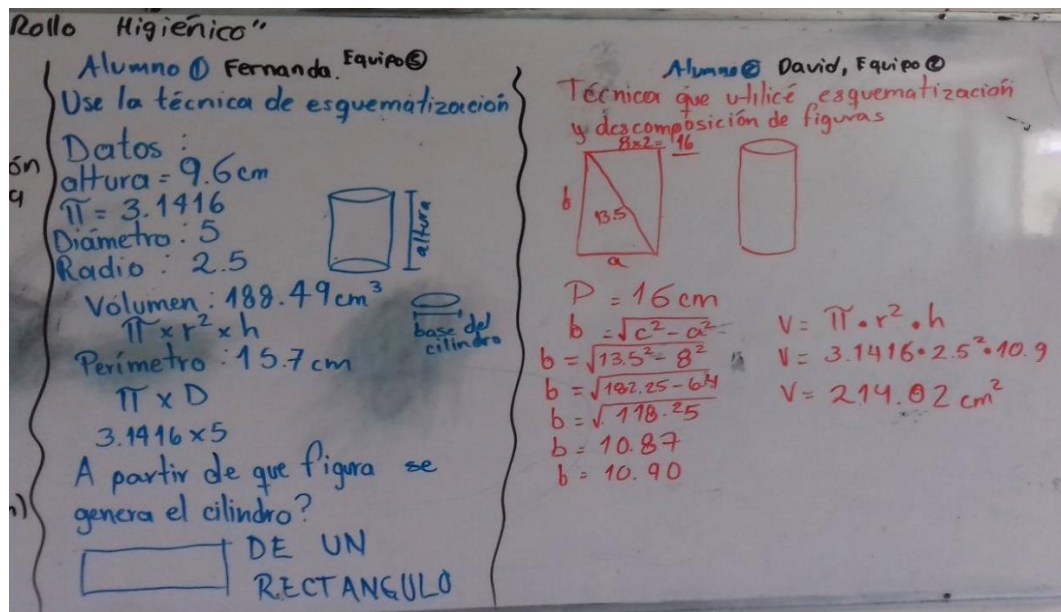 Rollo Higiénico"
ón
a
n)
Alumno ① Fernanda. Equipo⑤
Use la técnica de esquematización
Datos :
altura = 9.6 cm
π = 3.1416
Diámetro : 5
Radio : 2.5
altura
Volumen : 188.49 cm³
π x r² x h
base del
cilindro
Perímetro : 15.7 cm
π x D
3.1416 x 5
A partir de que figura se
genera el cilindro?
DE UN
RECTANGULO
Alumno② David, Equipo②
Técnica que utilicé esquematización
y descomposición de figuras
8x2= 16
b
13.5
a
P = 16 cm
b = √c² - a²
b = √13.5² - 8²
b = √182.25 - 64
b = √118.25
b = 10.87
b = 10.90
V = π • r² • h
V = 3.1416 • 2.5² • 10.9
V = 214.02 cm²